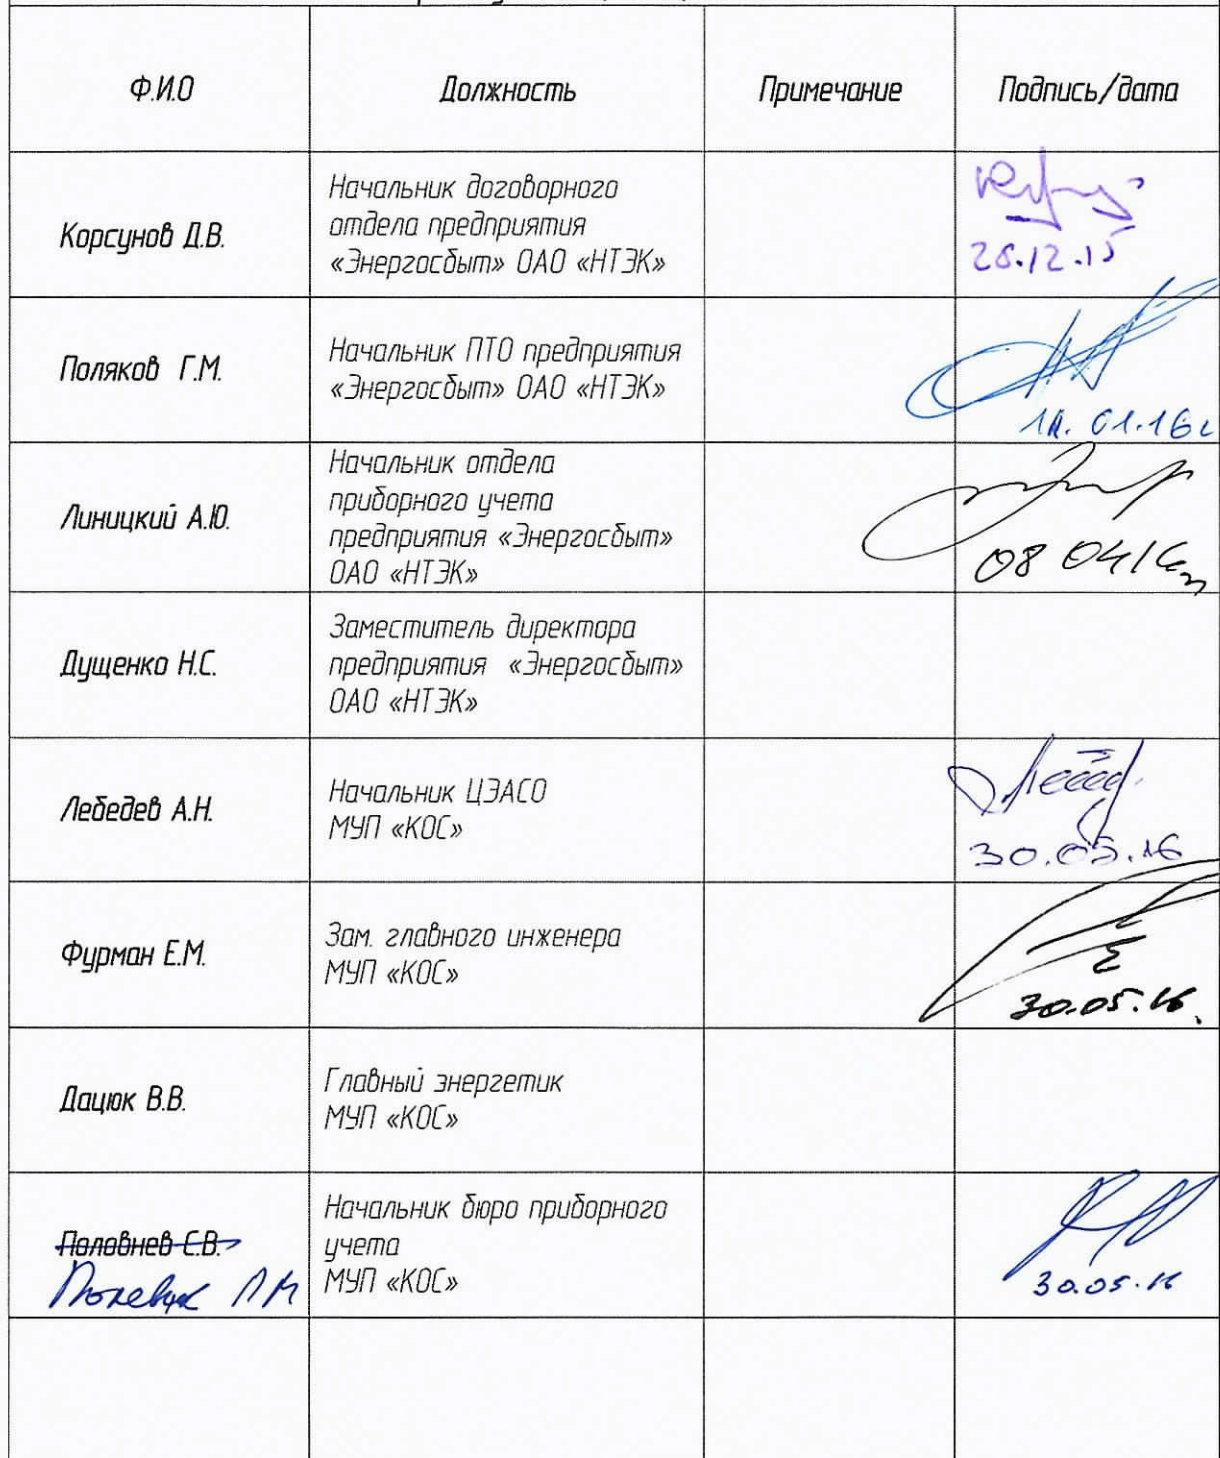 Ф.И.О Должность Примечание Подпись/дата
Корсунов Д.В.
Начальник договорного
отдела предприятия
«Энергосбыт» ОАО «НТЭК»
Поляков Г.М.
Начальник ПТО предприятия
«Энергосбыт» ОАО «НТЭК»
01.16г
Линицкий А.Ю.
Начальник отдела
приборного учета
предприятия «Энергосбыт»
ОАО «НТЭК»
08 04
Дущенко Н.С.
Заместитель директора
предприятия «Энергосбыт»
ОАО «НТЭК»
Лебедев А.Н.
Начальник ЦЭАСО
МУП «КОС»
30.05.16
Фурман Е.М.
Зам. главного инженера
МУП «КОС»
30.05.16.
Дацюк В.В.
Главный энергетик
МУП «КОС»
Половнев С.В.
Начальник бюро приборного
учета
МУП «КОС»
30.05.16